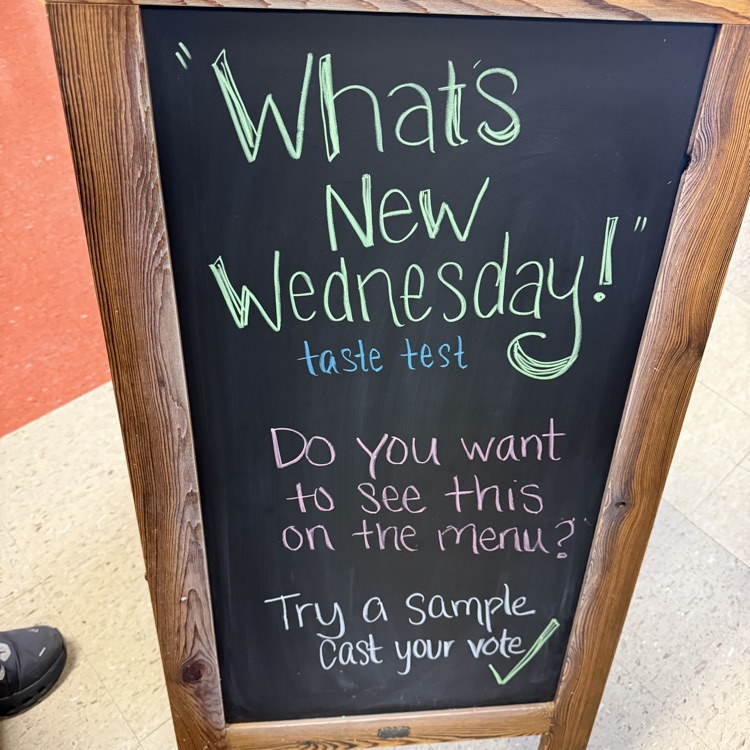 "What's
New
Wednesday!"
taste test
Do you want
to see this
on the menu?
Try a sample
Cast your vote ✓